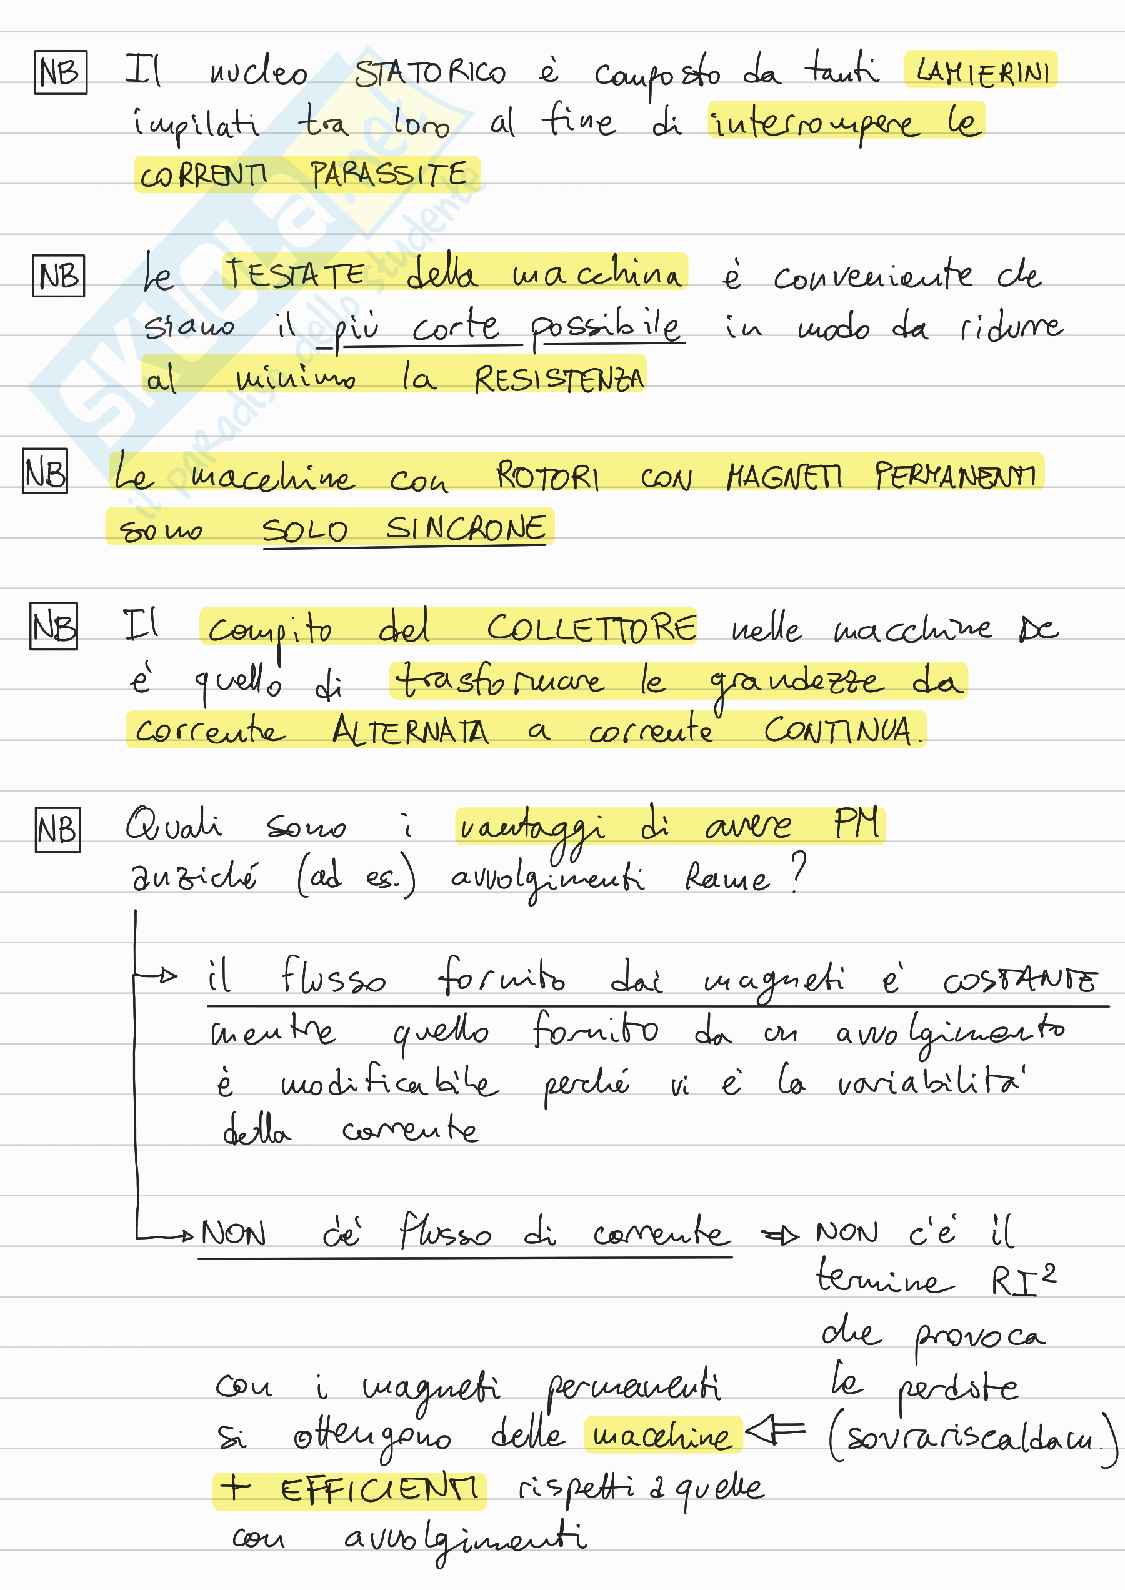 NB Il nucleo STATORICO è composto da tanti LAMIERINI
impilati tra loro al fine di interrompere le
CORRENTI PARASSITE
NB Le TESTATE della macchina è conveniente che
siano il più corte possibile in modo da ridurre
al minimo la RESISTENZA
NB Le macchine con ROTORI CON MAGNETI PERMANENTI
sono SOLO SINCRONE
NB Il compito del COLLETTORE nelle macchine DC
è quello di trasformare le grandezze da
corrente ALTERNATA a corrente CONTINUA.
NB Quali sono i vantaggi di avere PM
anziché (ad es.) avvolgimenti Rame?
il flusso fornito dai magneti è COSTANTE
mentre quello fornito da un avvolgimento
è modificabile perché vi è la variabilità
della corrente
NON c'è flusso di corrente ⇒ NON c'è il
termine RI²
che provoca
con i magneti permanenti le perdite
si ottengono delle macchine ⇐ (sovrariscaldam.)
+ EFFICIENTI rispetti a quelle
con avvolgimenti
SKUOLA.net
il paradiso dello studente